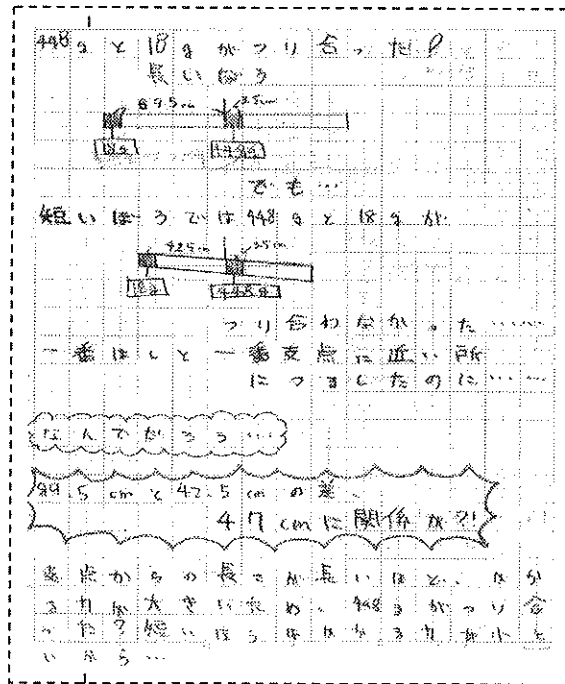 448gと18gがつり合った!
長いぼう
89.5cm 2.5cm
18g 448g
でも…
短いぼうでは448gと18gが
42.5cm 2.5cm
18g 448g
つり合わなかった……
一番はしと一番支点に近い所
につるしたのに……
なんでだろう…
89.5cmと42.5cmの差、
47cmに関係が?!
支点からの長さが長いほど、はか
る力が大きいため、448gがつり合
った?短いぼうははかる力が小さ
いから…